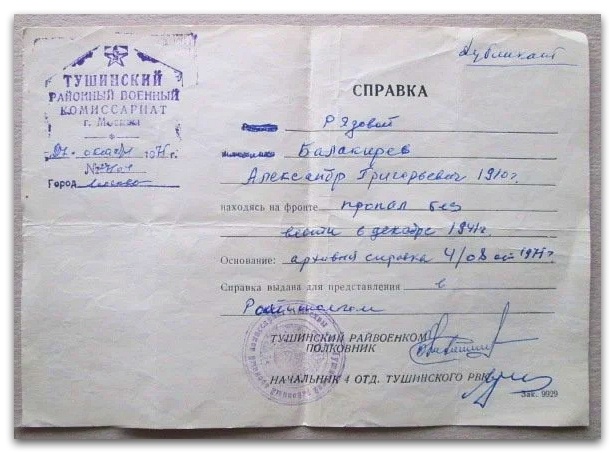 Дубликат
ТУШИНСКИЙ
РАЙОННЫЙ ВОЕННЫЙ
КОМИССАРИАТ
г. Москвы
октября 197 г.
№
Город Москва
СПРАВКА
Рядовой
Балакирев
Александр Григорьевич 1910 г.
находясь на фронте пропал без
вести в декабре 1941 г.
Основание: архивная справка 4/08 от 1971 г
Справка выдана для представления в
ТУШИНСКИЙ РАЙВОЕНКОМ
ПОЛКОВНИК
НАЧАЛЬНИК 4 ОТД. ТУШИНСКОГО РВК
Зак. 9929